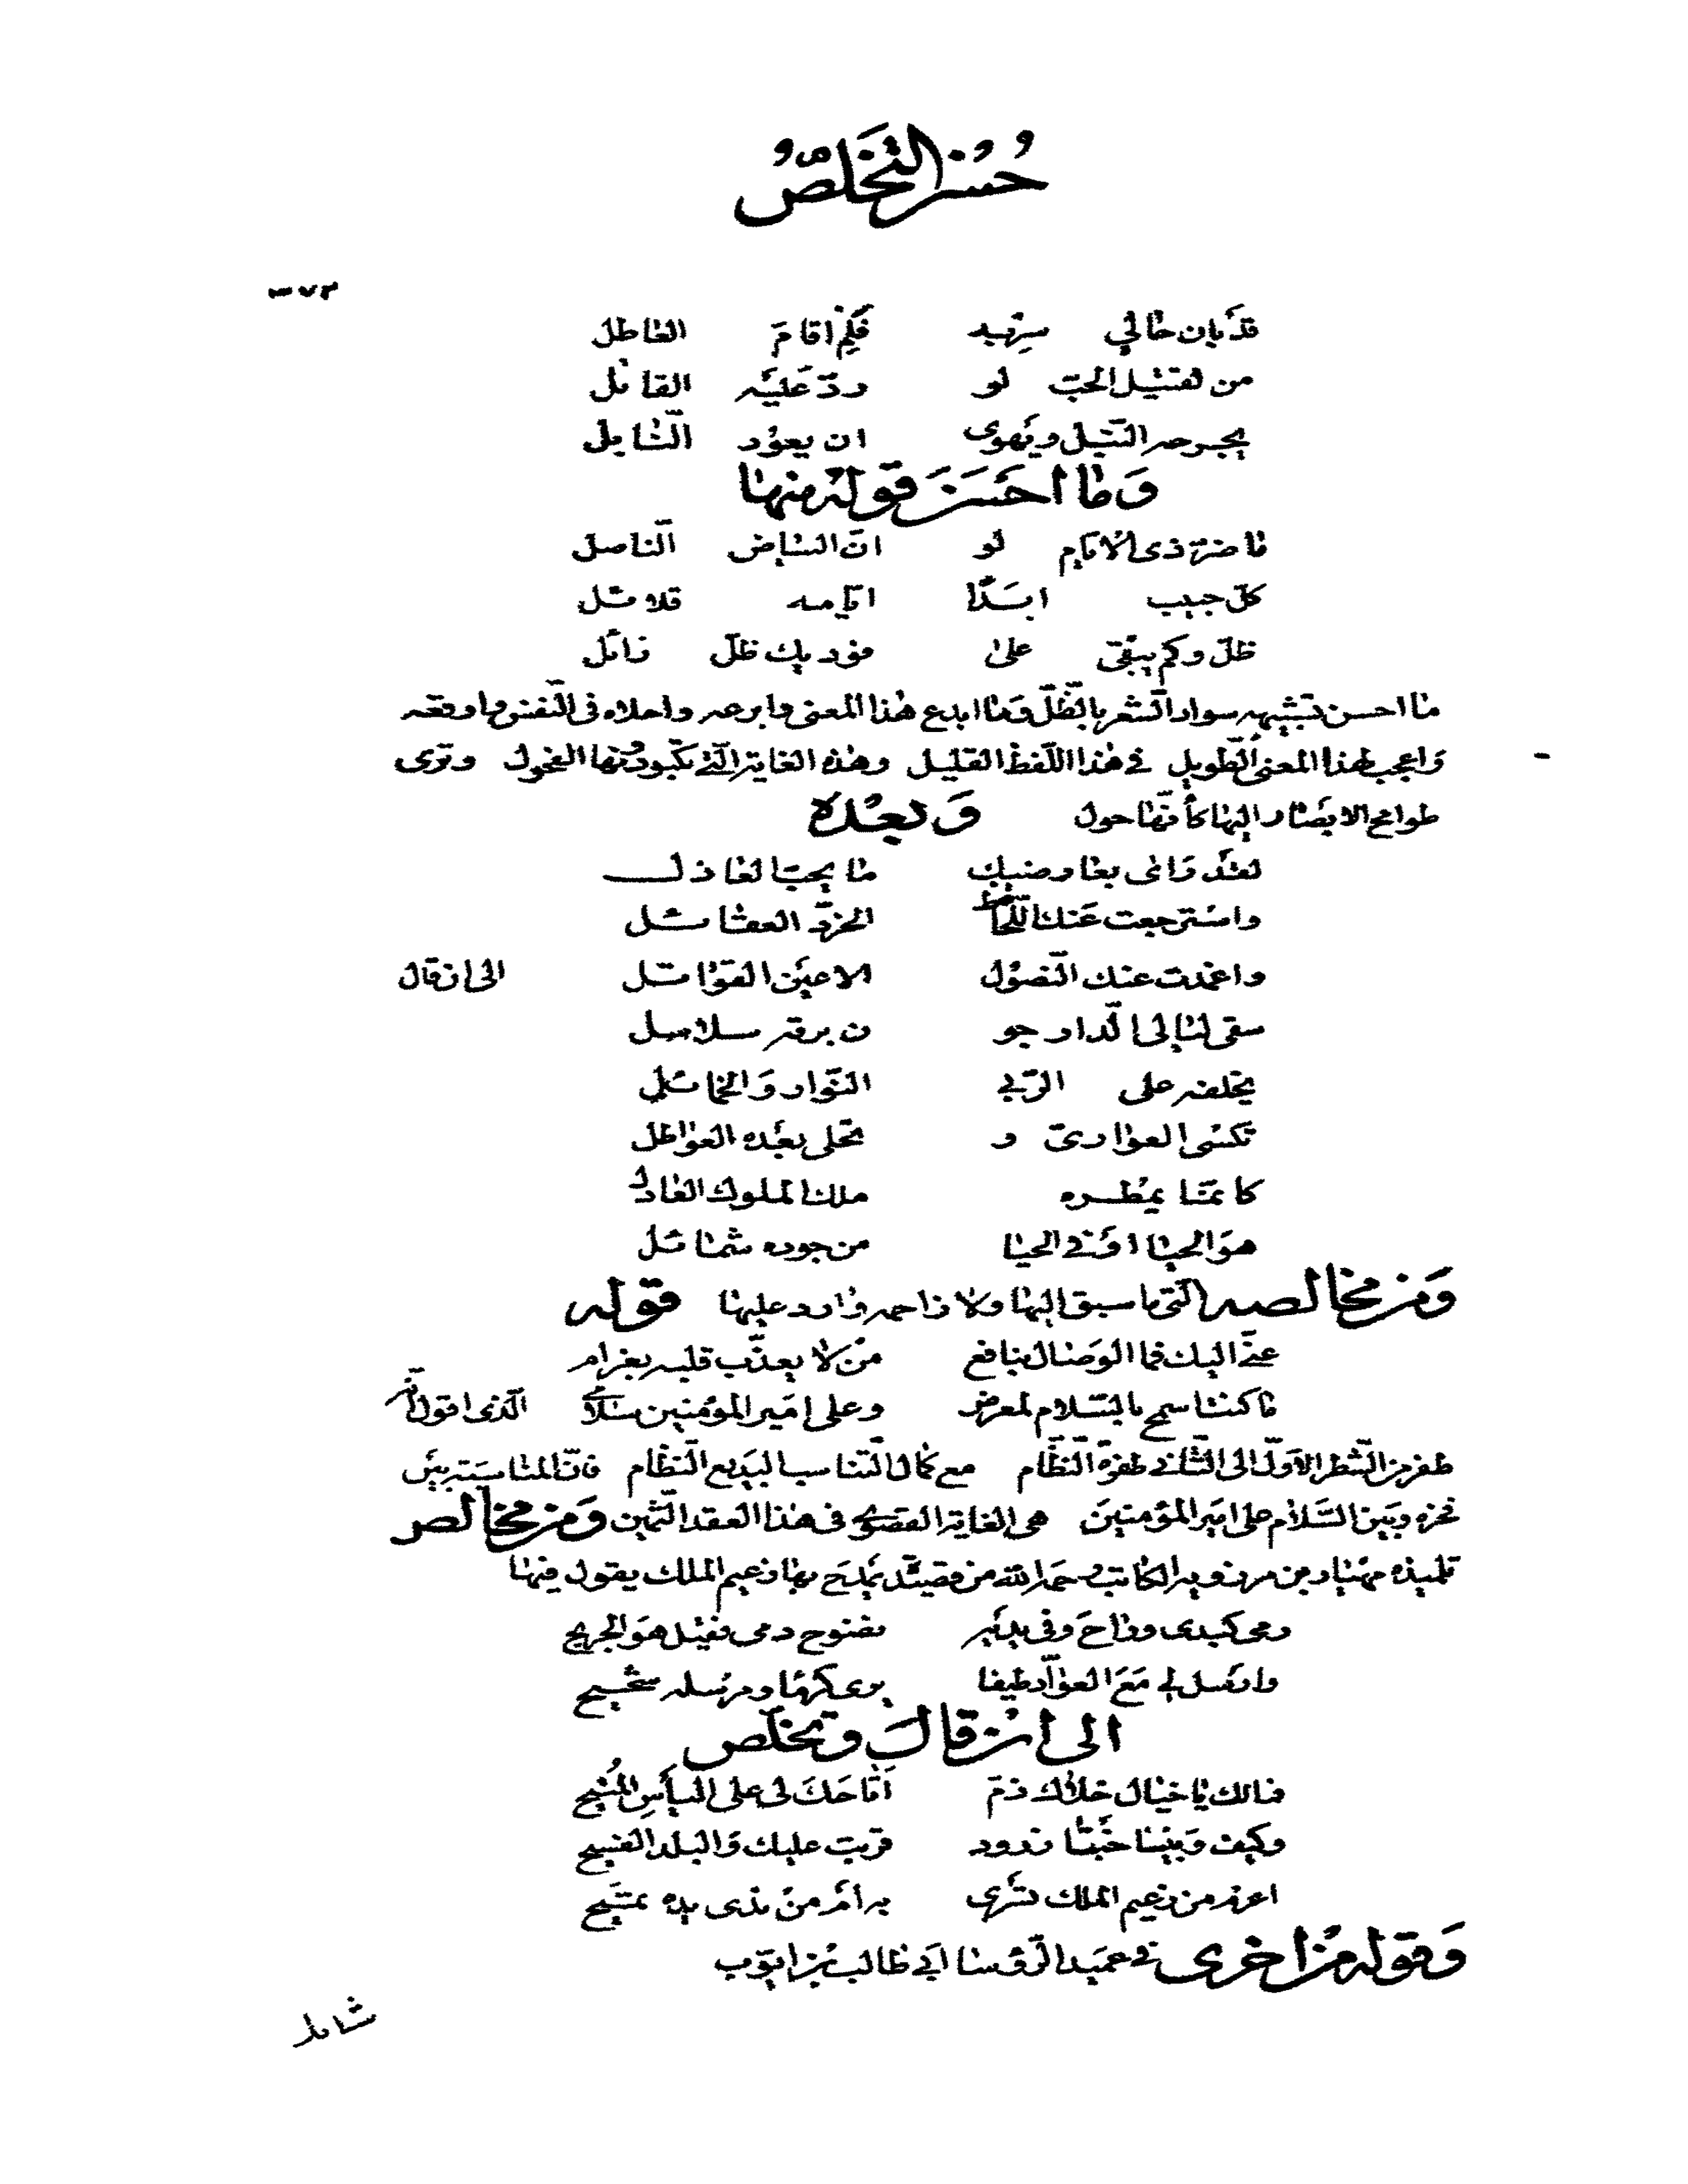 حُسْنُ التَّخَلُّصِ
قد بان حالي فلم اقام العاطل
من لقتيل الحب لو ردّ عليه القاتل
يجرحه النبل ويهوى ان يعود النابل
وما احسن قوله منها
ما ضرّ ذى الايام لو انّ البياض الناصل
كلّ حبيب ابدًا ايامه قلائل
ظلّ وكم يبقى على فوديك ظلّ زائل
ما احسن تشبيه سوار الشعر بالظلّ وما ابدع هذا المعنى وابرعه واحلاه فى النفس واوقعه
واعجب لهذا المعنى الطويل في هذا اللفظ القليل وهذه الغاية التي تكبو دونها الفحول وترى
طوامح الابصار اليها كأنها حول وبعده
لقد رأى بعارضيك ما يحب العاذل
واسترجعت عنك اللحاظ الخرد العقائل
واغمدت عنك النصول الاعين القواتل الى ان قال
سقى ليالى الدار جو ن برقه سلاسل
يخلفه على الربي النوار والخمائل
تكسى العوارى و تحلى بعده العواطل
كانما يمطره ملك الملوك العادل
هو الحيا او في الحيا من جوده شمائل
ومن مخالصه التى ما سبق اليها ولا زاحمه وارد عليها قوله
عنّي اليك فما الوصال بنافع من لا يعذّب قلبه بغرام
ما كنت اسمح بالسّلام لمعرض وعلى امير المؤمنين سلامي الذى اقول انه
طفر من الشطر الاوّل الى الثاني طفرة النظّام مع كمال التناسب البديع النظام فانّ المناسبة بين
نحزه وبين السّلام على امير المؤمنين هى الغاية القصوى فى هذا العقد الثمين ومن مخالص
تلميذه مهيار بن مرزويه الكاتب رحمه الله من قصيدة يمدح بها زعيم الملك يقول فيها
رمى كبدى وراح وفى يديه نضوح دمى فقيل هو الجريح
وارسل لي مع العوّاد طيفا يرى كرما ومرسله شحيح
الى ان قال وتخلص
فمالك يا خيال خلاك ذمّ اتاحك لى على اليأس المُتيح
وكيف وبيننا خبتا زرود قربت عليك والبلد الفسيح
اعزمه من زعيم الملك تسرى به ام من ندى يده تمتيح
وقوله من اخرى في عميد الرؤسا ابي طالب بن ايوب